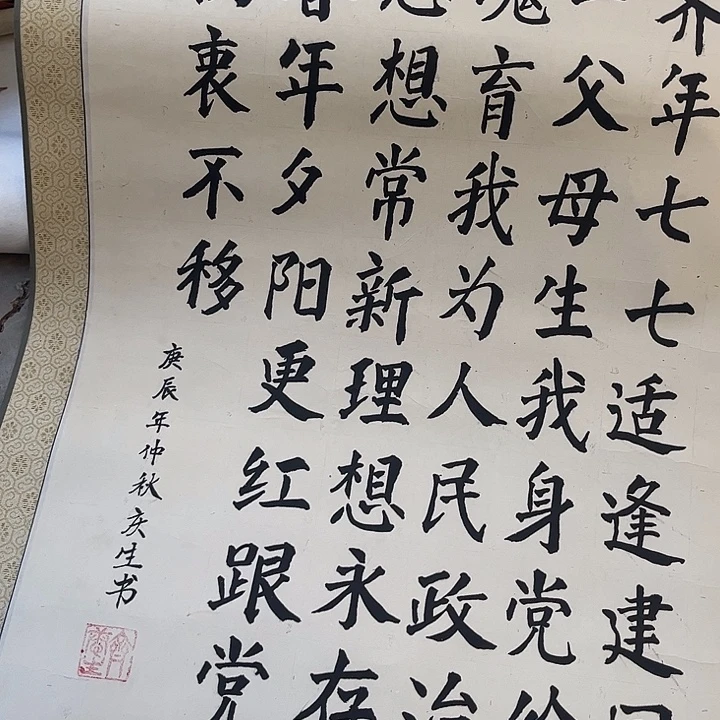 年七七适逢建
父母生我身党给
魂育我为人民政治
想常新理想永存
年夕阳更红跟党
衷不移
庚辰年仲秋庆生书